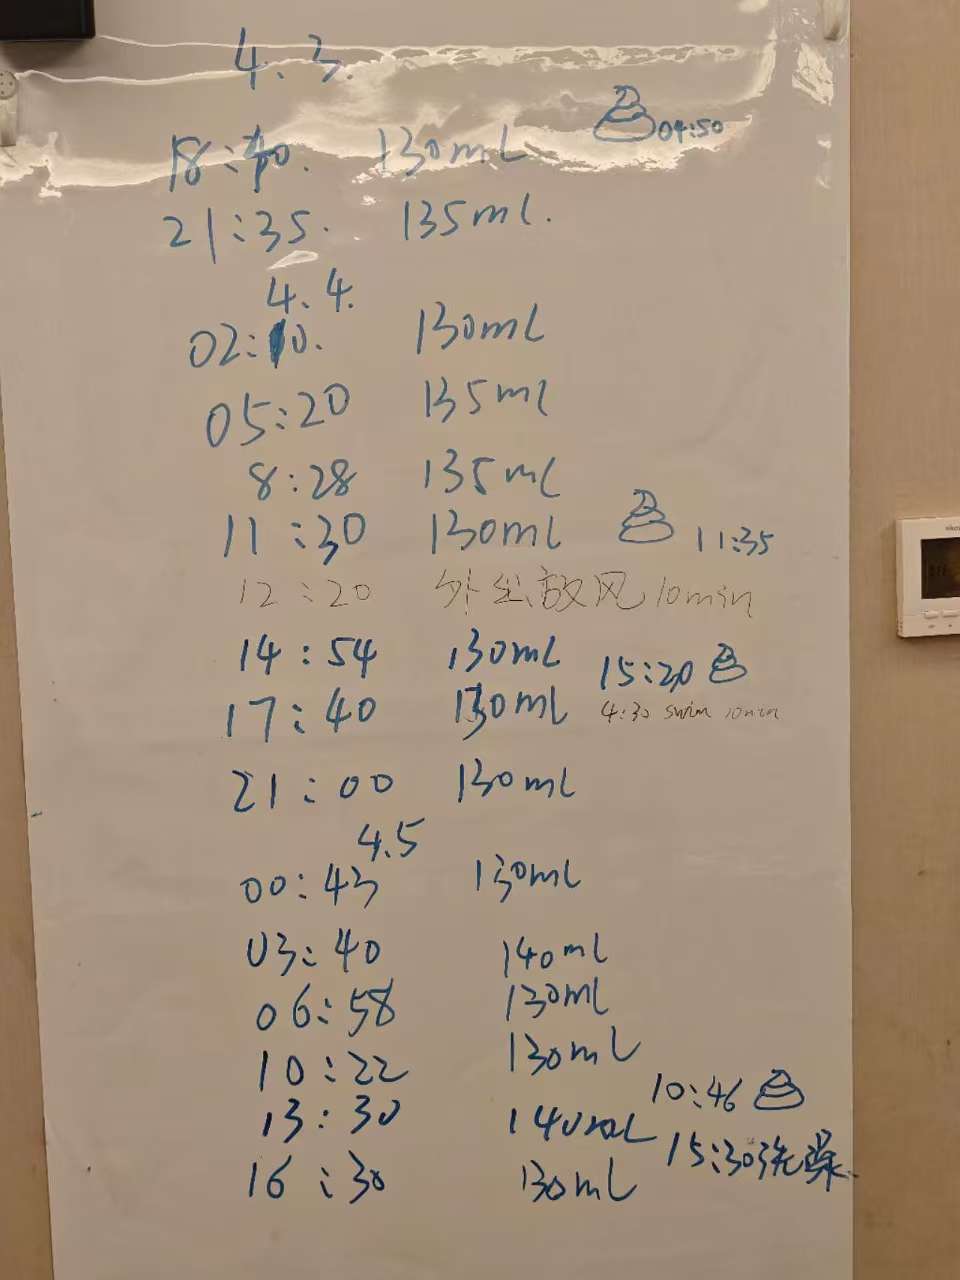 4.3.
04:50
18:40. 130mL
21:35. 135mL.
4.4.
02:10. 130mL
05:20 135mL
8:28 135mL
11:30 130mL 11:35
12:20 外出放风10min
14:54 130mL 15:20
17:40 130mL 4:30 swim 10min
21:00 130mL
4.5
00:43 130mL
03:40 140mL
06:58 130mL
10:22 130mL
10:46
13:30 140mL
15:30洗澡.
16:30 130mL